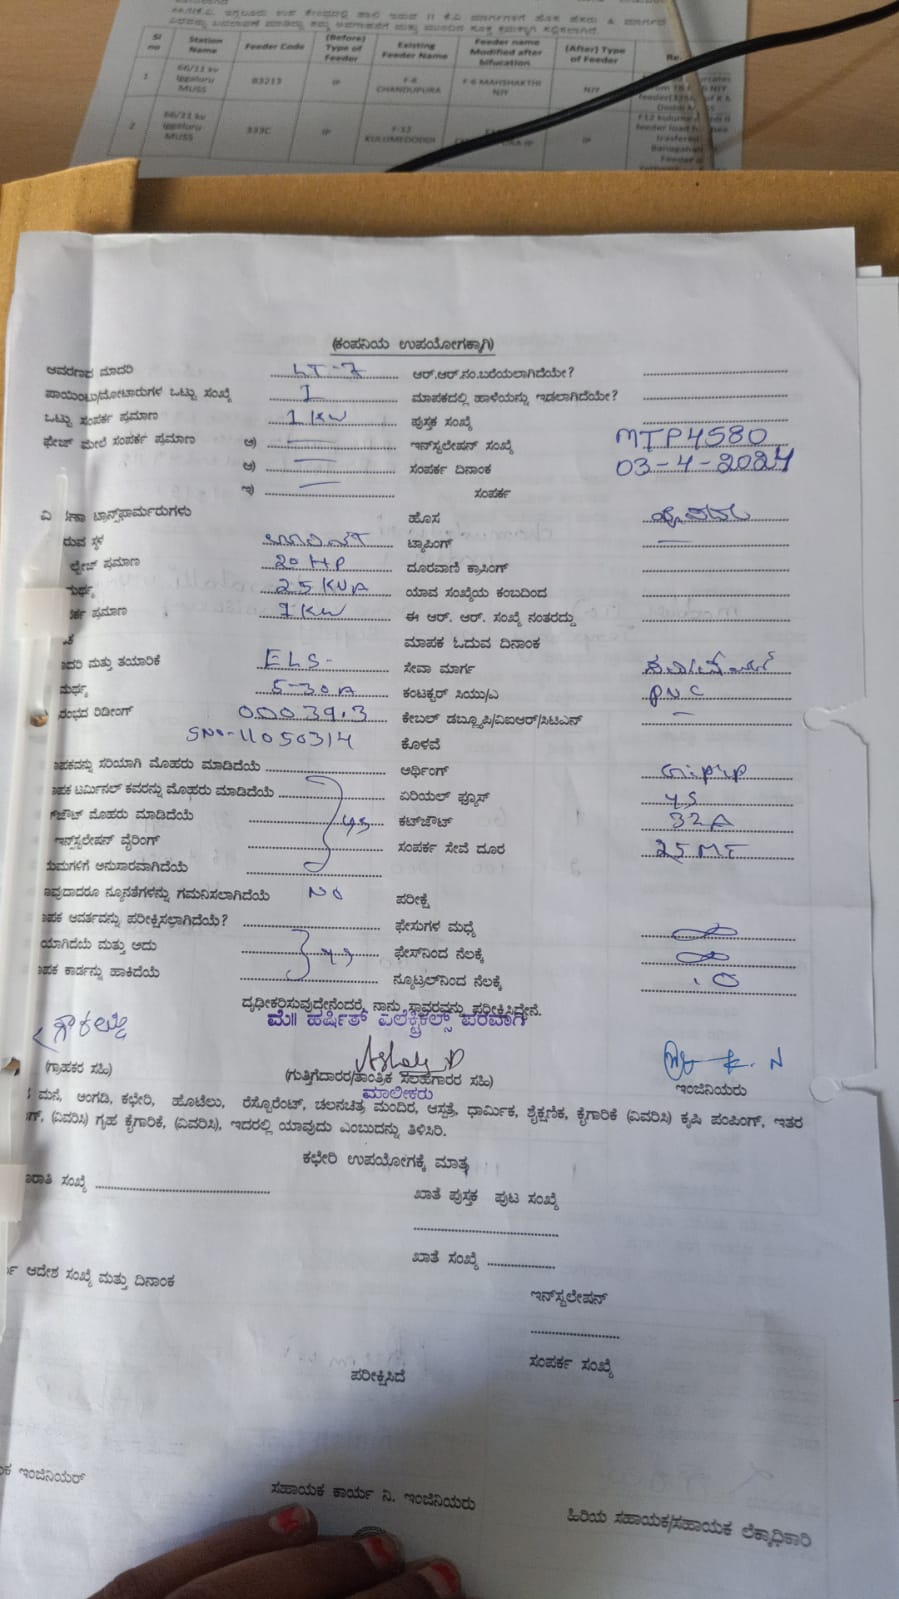 Sl no Station Name Feeder Code (Before) Type of Feeder Existing Feeder Name Feeder name Modified after bifucation (After) Type of Feeder Re.
1 66/11 kv Iggaluru MUSS 83213 IP F-6 CHANDUPURA F-6 MAHSHAKTHI NJY NJY
2 66/11 kv Iggaluru MUSS 333C IP F-12 KULUMEDODDI IP
(ಕಂಪನಿಯ ಉಪಯೋಗಕ್ಕಾಗಿ)
ಆವರಣದ ಮಾದರಿ LT-7 ಆರ್.ಆರ್.ನಂ.ಬರೆಯಲಾಗಿದೆಯೇ?
ಪಾಯಿಂಟು/ಮೋಟಾರುಗಳ ಒಟ್ಟು ಸಂಖ್ಯೆ 1 ಮಾಪಕದಲ್ಲಿ ಹಾಳೆಯನ್ನು ಇಡಲಾಗಿದೆಯೇ?
ಒಟ್ಟು ಸಂಪರ್ಕ ಪ್ರಮಾಣ 1 KW ಪುಸ್ತಕ ಸಂಖ್ಯೆ
ಫೇಜ್ ಮೇಲೆ ಸಂಪರ್ಕ ಪ್ರಮಾಣ ಅ) ಇನ್‌ಸ್ಟಲೇಷನ್ ಸಂಖ್ಯೆ MTP4580
ಆ) ಸಂಪರ್ಕ ದಿನಾಂಕ 03-4-2024
ಇ) ಸಂಪರ್ಕ
ಟ್ರಾನ್ಸ್‌ಫಾರ್ಮರುಗಳು ಹೊಸ
ರುವ ಸ್ಥಳ ಟ್ಯಾಪಿಂಗ್
ಪ್ರಮಾಣ 20 HP ದೂರವಾಣಿ ಕ್ರಾಸಿಂಗ್
ಮರ್ಥ್ಯ 25 KVA ಯಾವ ಸಂಖ್ಯೆಯ ಕಂಬದಿಂದ
ರ್ಕ ಪ್ರಮಾಣ 1 KW ಈ ಆರ್. ಆರ್. ಸಂಖ್ಯೆ ನಂತರದ್ದು
ಮಾಪಕ ಓದುವ ದಿನಾಂಕ
ಾದರಿ ಮತ್ತು ತಯಾರಿಕೆ ELS- ಸೇವಾ ಮಾರ್ಗ
ಮರ್ಥ್ಯ 5-30A ಕಂಟಕ್ಟರ್ ಸಿಯು/ಎ PVC
ರಂಭದ ರಿಡೀಂಗ್ 00039.3 ಕೇಬಲ್ ಡಬ್ಲ್ಯೂಪಿ/ವಿಐಆರ್/ಸಿಟಿಎನ್
SNo-11050314 ಕೊಳವೆ
ಾಪಕವನ್ನು ಸರಿಯಾಗಿ ಮೊಹರು ಮಾಡಿದೆಯೆ ಅರ್ಥಿಂಗ್
ಾಪಕ ಟರ್ಮಿನಲ್ ಕವರನ್ನು ಮೊಹರು ಮಾಡಿದೆಯೆ ಏರಿಯಲ್ ಫ್ಯೂಸ್ ys
ಟ್‌ಔಟ್ ಮೊಹರು ಮಾಡಿದೆಯೆ ys ಕಟ್‌ಔಟ್ 32A
ಇನ್‌ಸ್ಟಲೇಷನ್ ವೈರಿಂಗ್ ಸಂಪರ್ಕ ಸೇವೆ ದೂರ 25 MT
ಯಮಗಳಿಗೆ ಅನುಸಾರವಾಗಿದೆಯೆ
ಾವುದಾದರೂ ನ್ಯೂನತೆಗಳನ್ನು ಗಮನಿಸಲಾಗಿದೆಯೆ NO ಪರೀಕ್ಷೆ
ಾಪಕ ಆವರ್ತವನ್ನು ಪರೀಕ್ಷಿಸಲಾಗಿದೆಯೆ? ಫೇಸುಗಳ ಮಧ್ಯೆ ∞
ಯಾಗಿದೆಯೆ ಮತ್ತು ಅದು ys ಫೇಸ್‌ನಿಂದ ನೆಲಕ್ಕೆ ∞
ಾಪಕ ಕಾರ್ಡನ್ನು ಹಾಕಿದೆಯೆ ನ್ಯೂಟ್ರಲ್‌ನಿಂದ ನೆಲಕ್ಕೆ .0
ದೃಢೀಕರಿಸುವುದೇನೆಂದರೆ, ನಾನು ಸ್ಥಾವರವನ್ನು ಪರೀಕ್ಷಿಸಿದ್ದೇನೆ.
ಮೆ|| ಹರ್ಷಿತ್ ಎಲೆಕ್ಟ್ರಿಕಲ್ಸ್ ಪರವಾಗಿ
(ಗ್ರಾಹಕರ ಸಹಿ) (ಗುತ್ತಿಗೆದಾರರ/ತಾಂತ್ರಿಕ ಸಲಹೆಗಾರರ ಸಹಿ) ಇಂಜಿನಿಯರು
ಮಾಲೀಕರು
ಮನೆ, ಅಂಗಡಿ, ಕಛೇರಿ, ಹೊಟೆಲು, ರೆಸ್ಟೊರೆಂಟ್, ಚಲನಚಿತ್ರ ಮಂದಿರ, ಆಸ್ಪತ್ರೆ, ಧಾರ್ಮಿಕ, ಶೈಕ್ಷಣಿಕ, ಕೈಗಾರಿಕೆ (ವಿವರಿಸಿ) ಕೃಷಿ ಪಂಪಿಂಗ್, ಇತರ
ಗ್, (ವಿವರಿಸಿ) ಗೃಹ ಕೈಗಾರಿಕೆ, (ವಿವರಿಸಿ), ಇದರಲ್ಲಿ ಯಾವುದು ಎಂಬುದನ್ನು ತಿಳಿಸಿರಿ.
ಕಛೇರಿ ಉಪಯೋಗಕ್ಕೆ ಮಾತ್ರ
ರಾತಿ ಸಂಖ್ಯೆ ಖಾತೆ ಪುಸ್ತಕ ಪುಟ ಸಂಖ್ಯೆ
ಖಾತೆ ಸಂಖ್ಯೆ
ಆದೇಶ ಸಂಖ್ಯೆ ಮತ್ತು ದಿನಾಂಕ ಇನ್‌ಸ್ಟಲೇಷನ್
ಸಂಪರ್ಕ ಸಂಖ್ಯೆ
ಪರೀಕ್ಷಿಸಿದೆ
ಕ ಇಂಜಿನಿಯರ್ ಸಹಾಯಕ ಕಾರ್ಯ ನಿ. ಇಂಜಿನಿಯರು ಹಿರಿಯ ಸಹಾಯಕ/ಸಹಾಯಕ ಲೆಕ್ಕಾಧಿಕಾರಿ